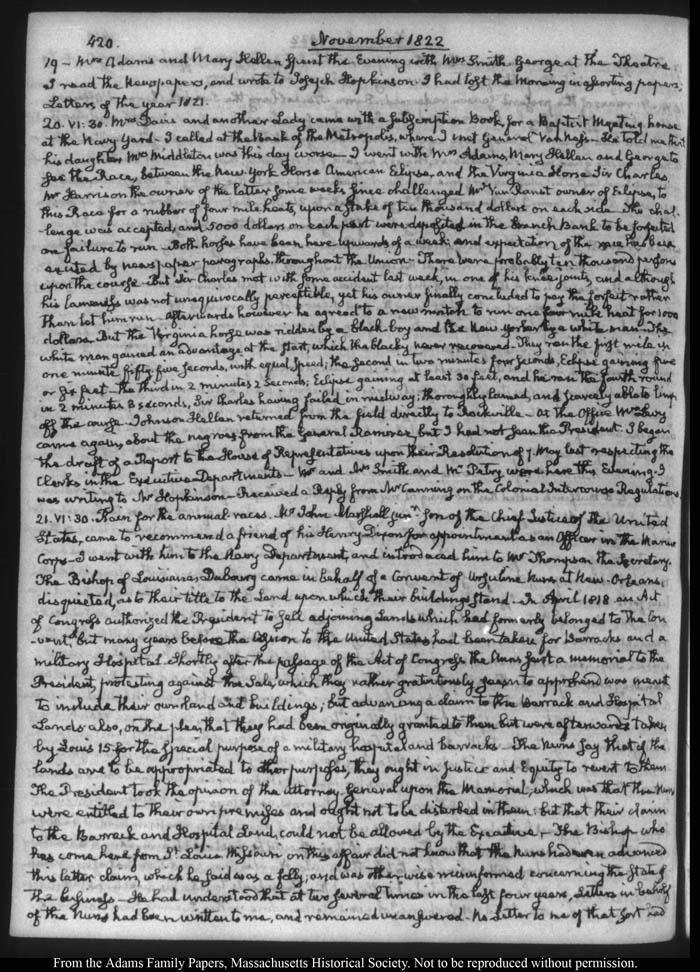 420.
November 1822
19 - Mrs Adams and Mary Hellen spent the Evening with Mrs Smith. George at the Theatre.
I read the Newspapers, and wrote to Joseph Hopkinson. I had lost the Morning in assorting papers.
Letters of the year 1821.
20. VI:30. Mrs and another Lady came with a subscription Book, for a Baptist Meeting house
at the Navy Yard - I called at the Bank of the Metropolis, where I met General Van Ness - He told me that
his daughter Mrs Middleton was this day worse - I went with Mrs Adams, Mary Hellen and George to
see the Race, between the New York Horse American Eclipse, and the Virginia Horse Sir Charles.
Mr Harrison the owner of the latter some weeks since challenged Mr Van Ranst owner of Eclipse, to
this Race for a rubber of four mile heats, upon a stake of ten thousand dollars on each side. The chal-
lenge was accepted, and 5000 dollars on each part were deposited in the Branch Bank to be forfeited
on failure to run - Both horses have been here upwards of a week; and expectation of the race has been
excited by newspaper paragraphs, throughout the Union - There were probably ten thousand persons
upon the course - But Sir Charles met with some accident last week, in one of his knee joints, and although
his lameness was not unequivocally perceptible, yet his owner finally concluded to pay the forfeit rather
than let him run - afterwards however he agreed to a new match to run one four mile heat for 1000
dollars. But the Virginia horse was ridden by a black boy and the New Yorker by a white man - The
white man gained an advantage at the start, which the blacky never recovered - They ran the first mile in
one minute fifty five seconds, with equal speed; the second in two minutes four seconds, Eclipse gaining five
or feet - the third in 2 minutes 2 seconds; Eclipse gaining at least 30 feet, and he ran the fourth round
in 2 minutes 8 seconds, Sir Charles having failed in midway; thoroughly lamed, and scarcely able to limp
off the course - Johnson Hellen returned from the field directly to Rockville - At the Office Mr
came again, about the negroes from the General Ramirez, but I had not seen the President. I began
the draft of a Report to the House of Representatives upon their Resolution of 7. May last respecting the
Clerks in the Executive Departments - Mr and Mrs Smith and Mr Petry were here this Evening. I
was writing to Mr Hopkinson - Received a Reply from Mr Canning on the Colonial Intercourse Regulations.
21. VI:30. Rain for the annual races. Mr John Marshall junr. son of the Chief Justice of the United
States, came to recommend a friend of his Henry Dixon for appointment as an Officer in the Marine
Corps - I went with him to the Navy Department, and introduced him to Mr Thompson the Secretary.
The Bishop of Louisiana Dubourg came in behalf of a Convent of Ursuline Nuns at New-Orleans;
disquieted, as to their title to the Land upon which their buildings stand - In April 1818 an Act
of Congress authorized the President to sell adjoining Lands which had formerly belonged to the Con-
vent, but many years before the cession to the United States had been taken for Barracks and a
military Hospital. Shortly after the passage of the Act of Congress the Nuns sent a memorial to the
President, protesting against the Sale, which they rather gratuitously seem to apprehend was meant
to include their own land and buildings; but advancing a claim to the Barrack and Hospital
Lands also, on the plea, that they had been originally granted to them, but were afterwards taken
by Louis 15 for the special purpose of a military hospital and barracks - The Nuns say that if the
lands are to be appropriated to other purposes, they ought in Justice and Equity to revert to them
The President took the opinion of the attorney General upon the Memorial, which was that the Nuns
were entitled to their own premises and ought not to be disturbed in them: but that their claim
to the Barrack and Hospital Land, could not be allowed by the Executive, - The Bishop who
has come here from St. Louis Missouri on this affair did not know that the Nuns had even advanced
this latter claim, which he said was a folly, and was otherwise misinformed concerning the state of
the business - He had understood that at two several times in the last four years, Letters in behalf
of the Nuns had been written to me, and remained unanswered. No Letter to me of that sort had
From the Adams Family Papers, Massachusetts Historical Society. Not to be reproduced without permission.